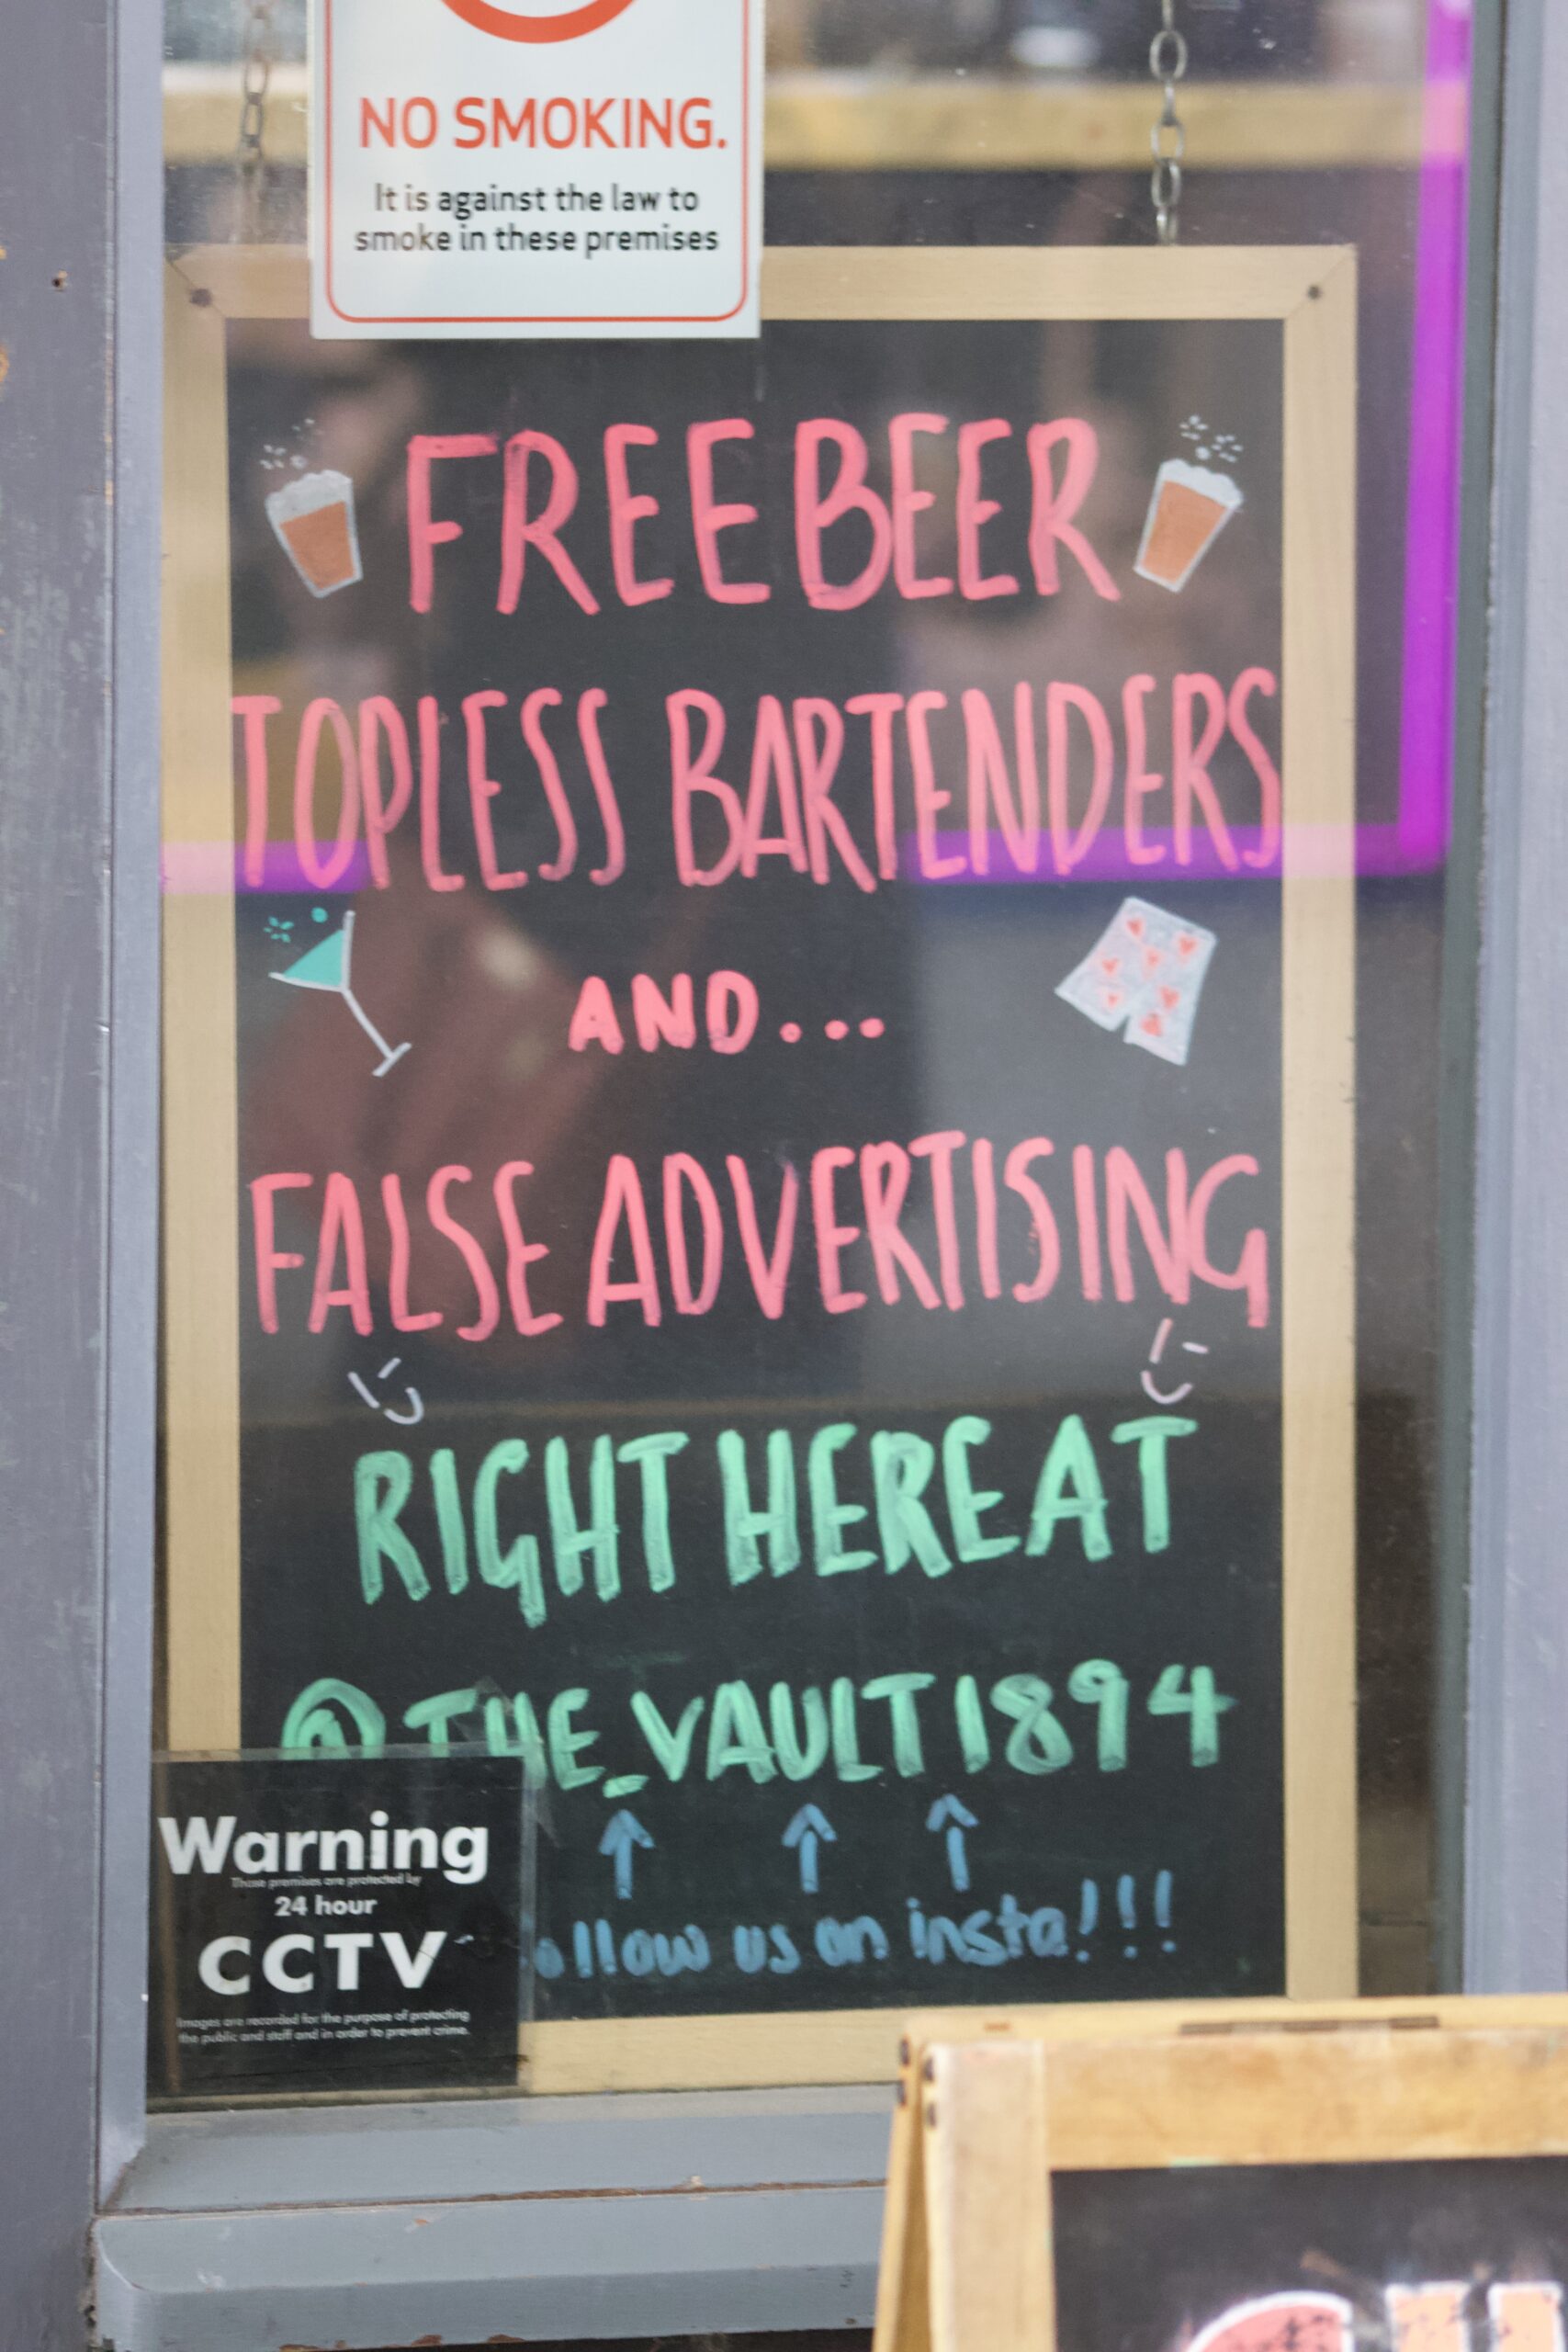 NO SMOKING.
It is against the law to
smoke in these premises
FREE BEER
TOPLESS BARTENDERS
AND...
FALSE ADVERTISING
RIGHT HERE AT
@THE_VAULT1894
ollow us on insta!!!
Warning
These premises are protected by
24 hour
CCTV
Images are recorded for the purpose of protecting
the public and staff and in order to prevent crime.